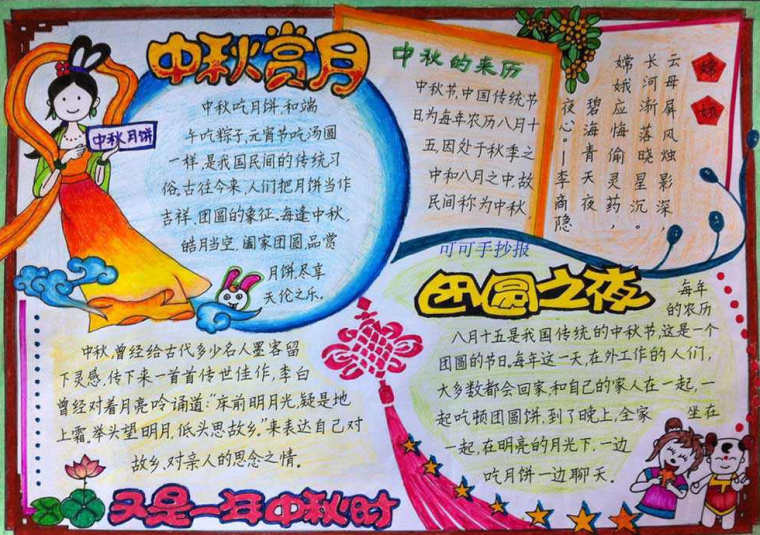 中秋赏月
中秋月饼
中秋吃月饼,和端
午吃粽子,元宵节吃汤圆
一样,是我国民间的传统习
俗。古往今来,人们把月饼当作
吉祥、团圆的象征。每逢中秋,
皓月当空,阖家团圆,品赏
月饼,尽享
天伦之乐。
中秋的来历
中秋节,中国传统节
日为每年农历八月十
五,因处于秋季之
中和八月之中,故
民间称为中秋
嫦娥
云母屏风烛影深,
长河渐落晓星沉。
嫦娥应悔偷灵药,
碧海青天夜
夜心。—李商隐
可可手抄报
团圆之夜
每年
的农历
八月十五是我国传统的中秋节,这是一个
团圆的节日。每年这一天,在外工作的人们,
大多数都会回家,和自己的家人在一起,一
起吃顿团圆饼,到了晚上,全家 坐在
一起,在明亮的月光下,一边
吃月饼一边聊天。
中秋,曾经给古代多少名人墨客留
下灵感,传下来一首首传世佳作,李白
曾经对着月亮吟诵道:“床前明月光,疑是地
上霜,举头望明月,低头思故乡。”来表达自己对
故乡,对亲人的思念之情。
又是一年中秋时